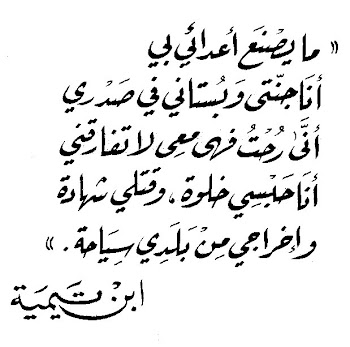 « ما يصْنَع أعدائي بي
أنَا جنّتى وَبُستاني في صَدْري
أنَّىٰ رُحْتُ فهى معى لا تفارقني
أنَا حَبْسِي خلوة ، وَقتلي شهادة
وإخراجي مِنْ بَلَدِي سِيَاحة . »
ابن تيمية